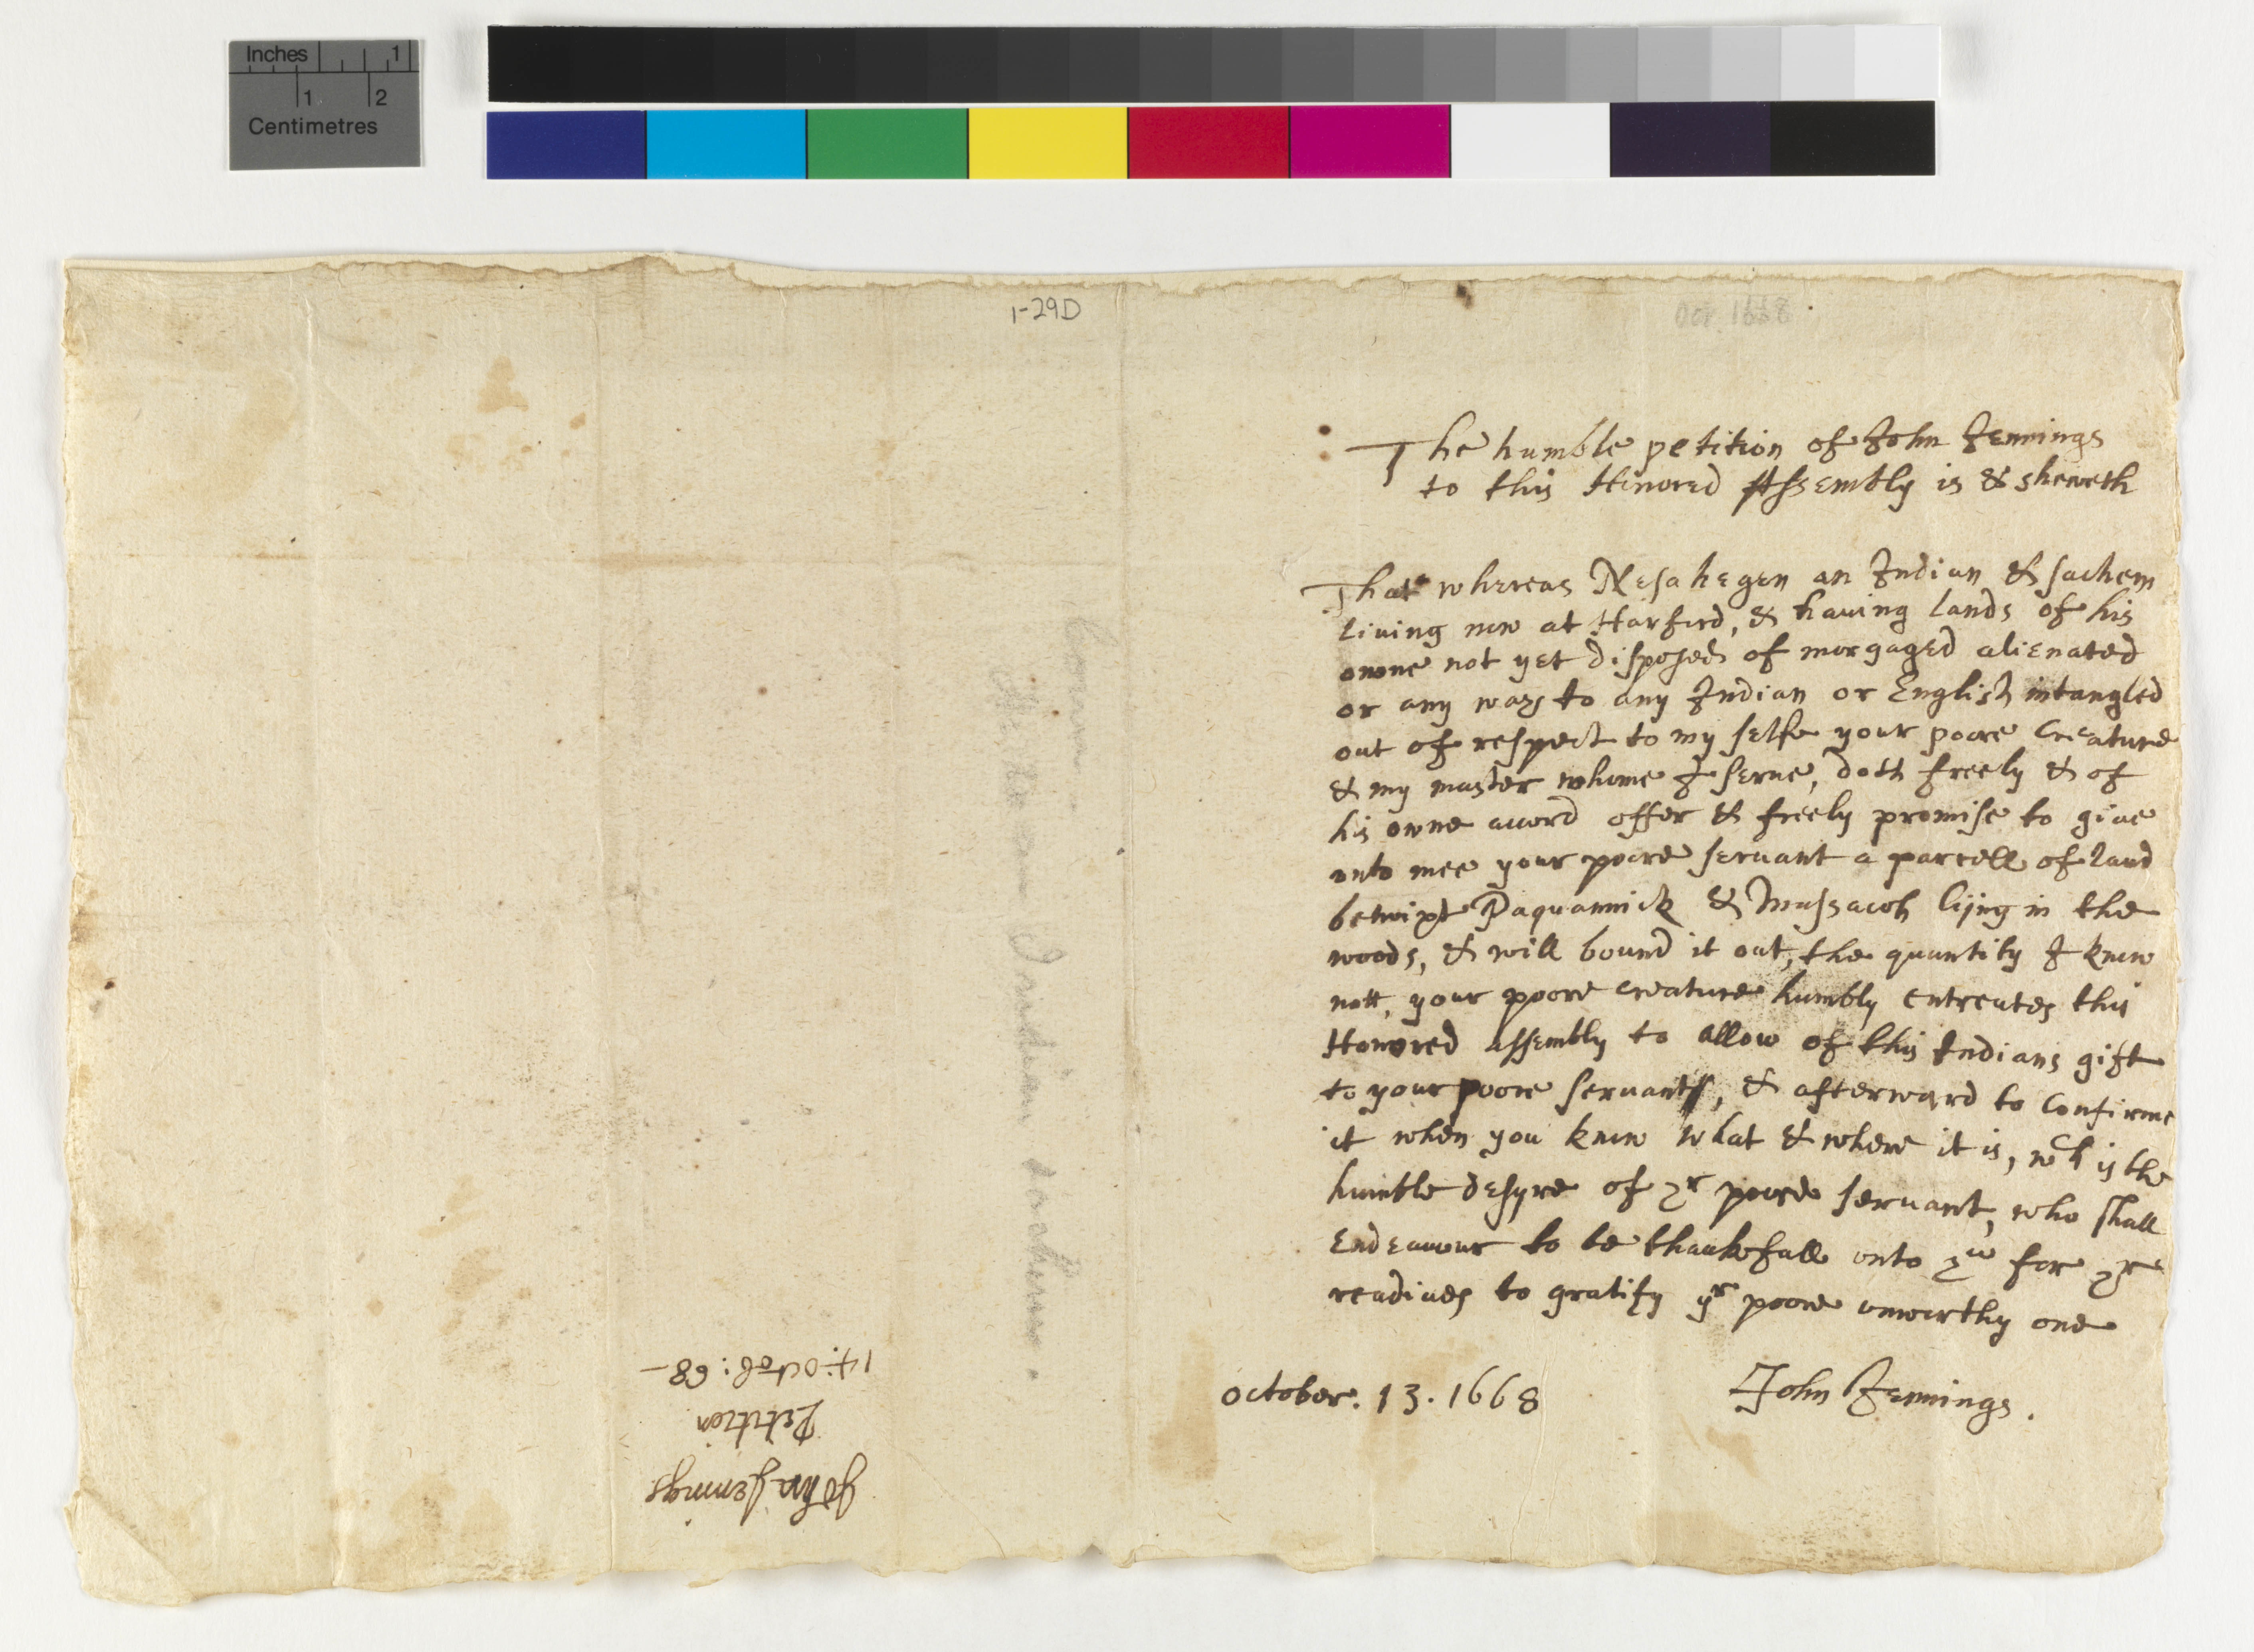 Inches 1
1 2
Centimetres
1-29D
Oct. 1668
The humble petition of John Jennings
to this Honored Assembly is & sheweth
That whereas Nesahegen an Indian & sachem
liuing now at Harford, & hauing lands of his
owne not yet disposed of morgaged alienated
or any ways to any Indian or English intangled
out of respect to my selfe your poore Creature
& my master whome I serue, doth freely & of
his owne accord offer & freely promise to giue
vnto mee your poore seruant a parcell of land
betwixt Paquannick & Massacoh lijng in the
woods, & will bound it out, the quantity I know
nott, your poore creature humbly entreates this
Honored assembly to allow of this Indians gift
to your poore seruant, & afterward to Confirme
it when you know what & where it is, wch is the
humble desyre of yr poore seruant, who shall
Endeauour to be thankefull vnto yu for yr
readines to gratify yr poore vnworthy one
October. 13. 1668 John Jennings.
John Jennings
Petition
14: octob: 68 –
Indian sachem.